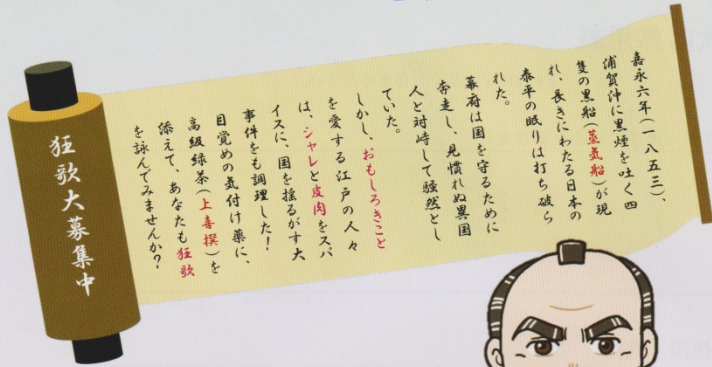 嘉永六年(一八五三)、
浦賀沖に黒煙を吐く四
隻の黒船(蒸気船)が現
れ、長きにわたる日本の
泰平の眠りは打ち破ら
れた。
幕府は国を守るために
奔走し、見慣れぬ異国
人と対峙して騒然とし
ていた。
しかし、おもしろきこと
を愛する江戸の人々
は、シャレと皮肉をスパ
イスに、国を揺るがす大
事件をも調理した!
目覚めの気付け薬に、
高級緑茶(上喜撰)を
添えて、あなたも狂歌
を詠んでみませんか?
狂歌大募集中